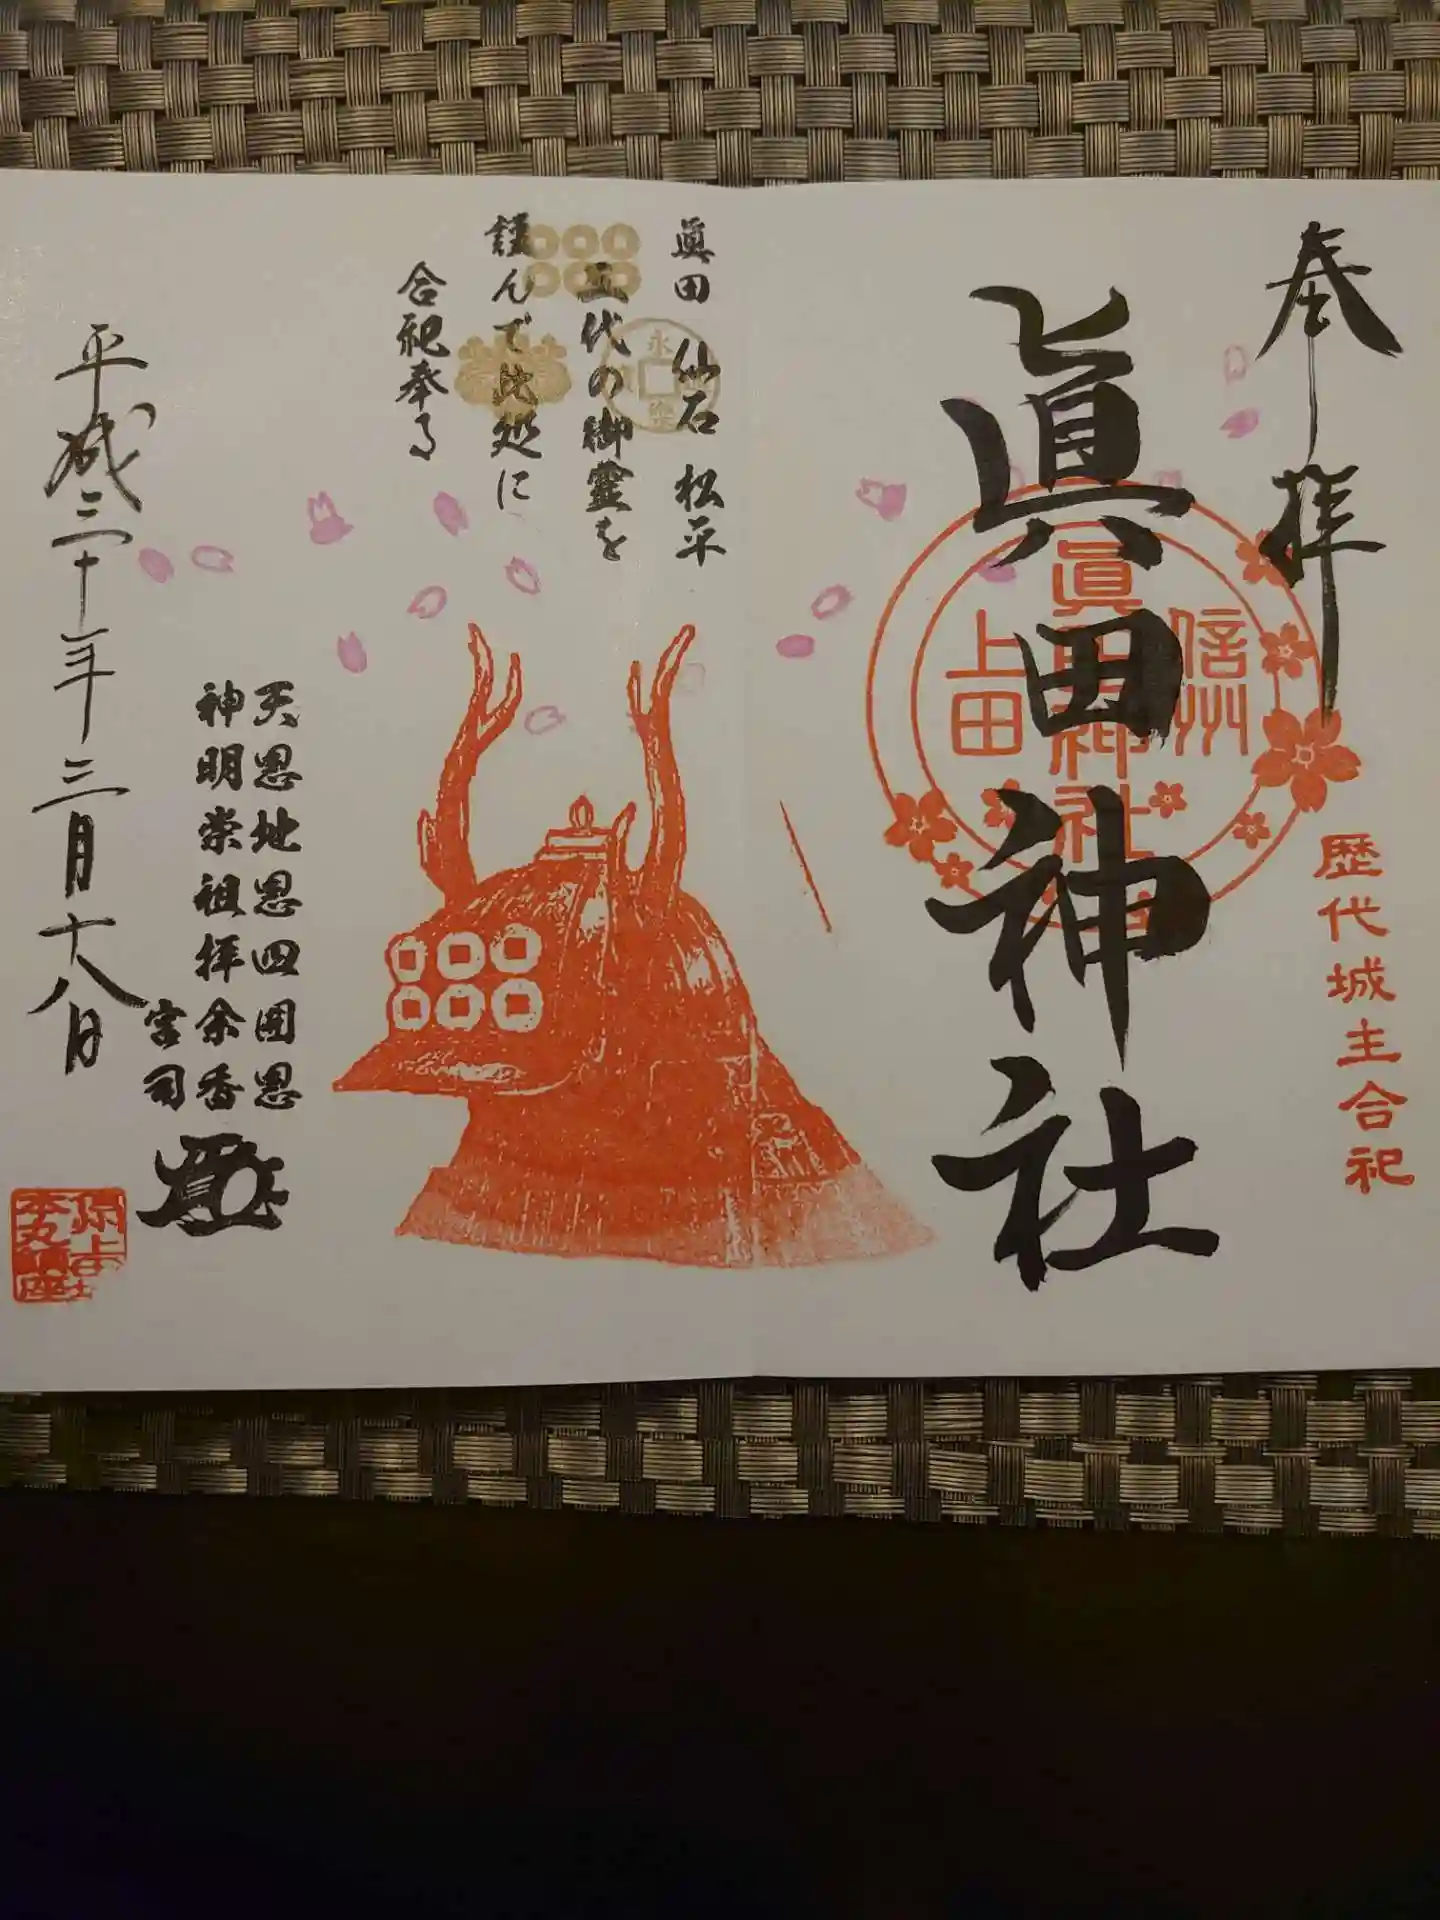 奉拝
歴代城主合祀
眞田神社
信州
眞田神社
上田
眞田 仙石 松平
三代の御霊を
謹んで此処に
合祀奉る
永
樂
天恩地恩四囲恩
神明崇祖拝余香
宮司
平成三十年三月十八日